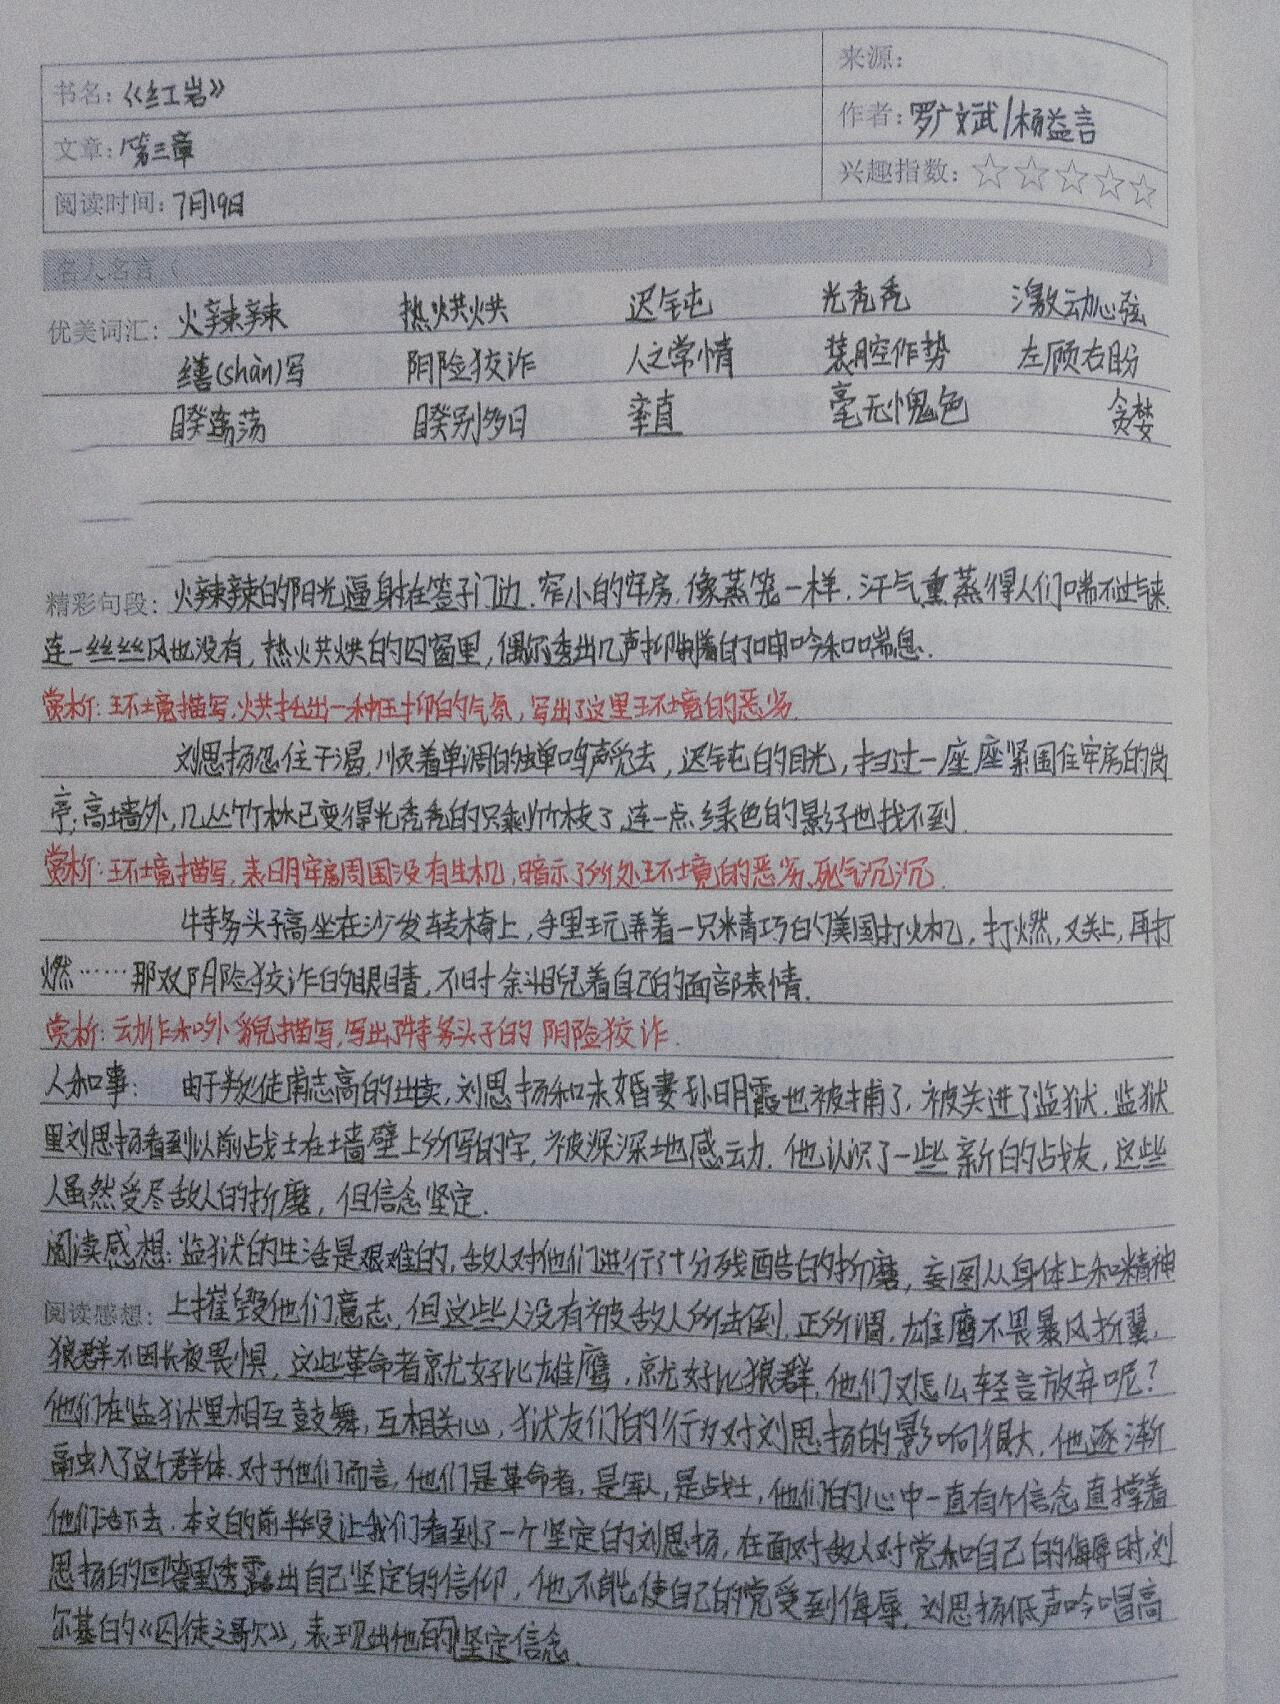 书名：《红岩》
来源：
作者：罗广文武/杨益言
文章：第三章
兴趣指数：☆☆☆☆☆
阅读时间：7月19日
名人名言
优美词汇：火辣辣 热烘烘 迟钝 光秃秃 激动心弦
缮(shàn)写 阴险狡诈 人之常情 装腔作势 左顾右盼
暌荡荡 暌别多日 率直 毫无愧色 贪婪
精彩句段：火辣辣的阳光逼射在签子门边，窄小的牢房，像蒸笼一样，汗气熏蒸得人们喘不过气来，
连一丝丝风也没有，热烘烘的囚窗里，偶尔透出几声抑制着的呻吟和喘息．
赏析：环境描写，烘托出一种压抑的气氛，写出了这里环境的恶劣．
刘思扬忍住干渴，顺着单调的蝉鸣声望去，迟钝的目光，扫过一座座紧围住牢房的岗
亭；高墙外，几丛竹林已变得光秃秃的只剩竹枝了，连一点绿色的影子也找不到．
赏析：环境描写，表明牢房周围没有生机，暗示了所处环境的恶劣，死气沉沉．
特务头子高坐在沙发转椅上，手里玩弄着一只精巧的美国打火机，打燃，又关上，再打
燃……那双阴险狡诈的眼睛，不时斜睨着自己的面部表情．
赏析：动作和外貌描写，写出了特务头子的阴险狡诈．
人和事： 由于叛徒甫志高的出卖，刘思扬和未婚妻孙明霞也被捕了，被关进了监狱．监狱
里刘思扬看到以前战士在墙壁上所写的字，被深深地感动．他认识了一些新的战友，这些
人虽然受尽敌人的折磨，但信念坚定．
阅读感想：监狱的生活是艰难的，敌人对他们进行了十分残酷的折磨，妄图从身体上和精神
阅读感想：上摧毁他们意志，但这些人没有被敌人所击倒，正所谓，雄鹰不畏暴风折翼，
狼群不因长夜畏惧，这些革命者就好比雄鹰，就好比狼群，他们又怎么轻言放弃呢？
他们在监狱里相互鼓舞，互相关心，狱友们的行为对刘思扬的影响很大，他逐渐
融入了这个群体．对于他们而言，他们是革命者，是军人，是战士，他们的心中一直有个信念直撑着
他们活下去．本文的前半段让我们看到了一个坚定的刘思扬，在面对敌人对党和自己的侮辱时，刘
思扬的回答里透露出自己坚定的信仰，他不能使自己的党受到侮辱，刘思扬低声吟唱高
尔基的《囚徒之歌》，表现出他的坚定信念．